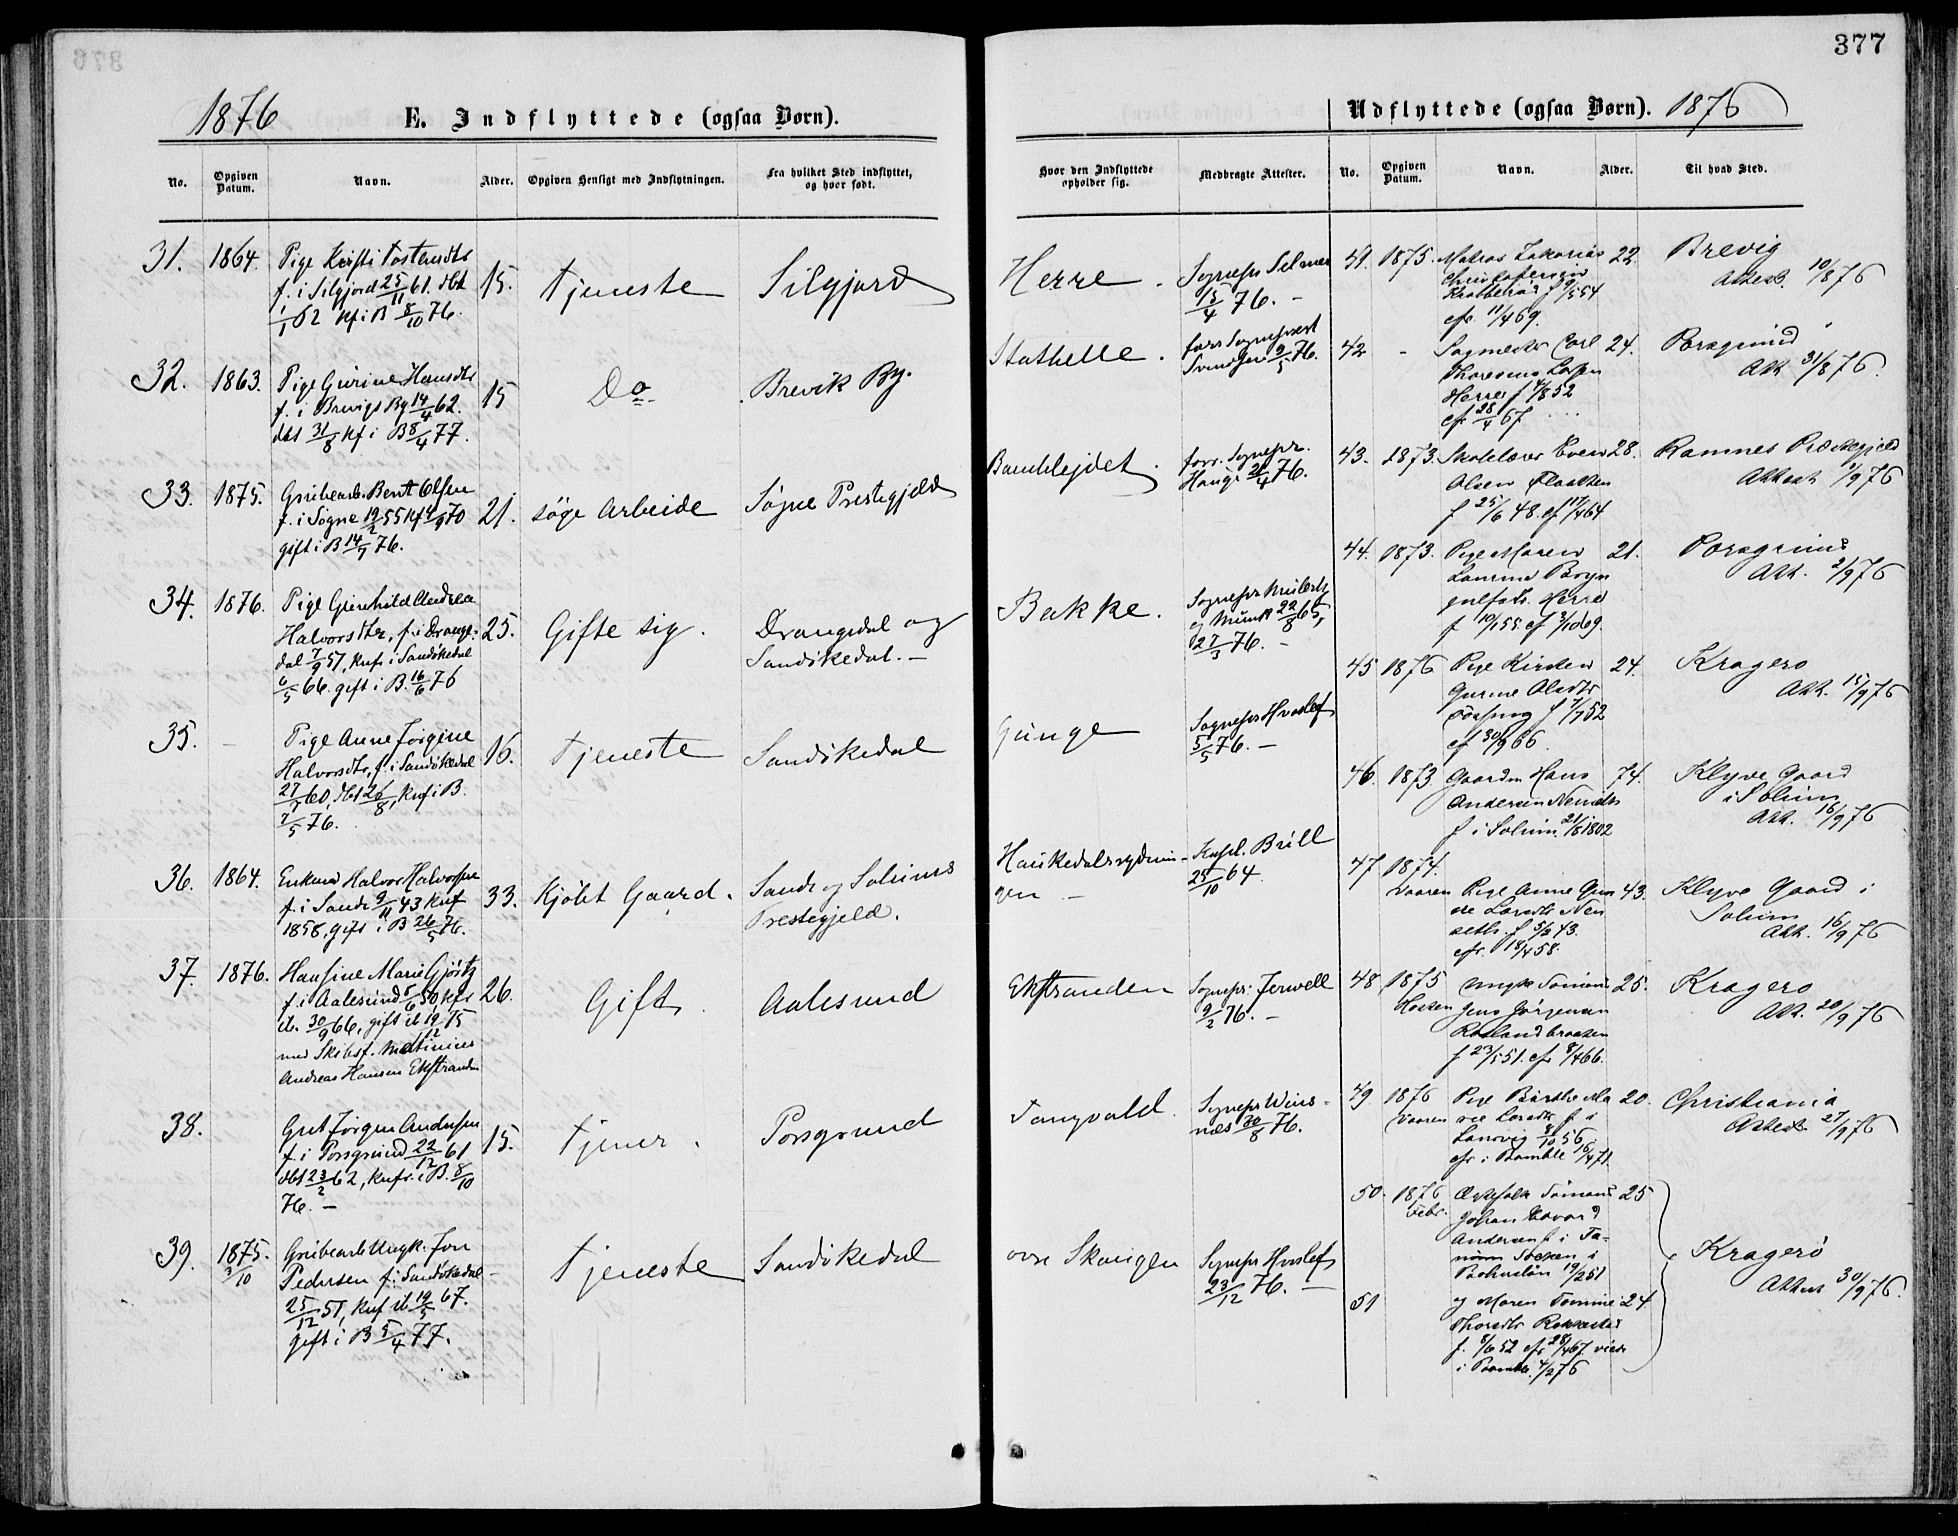 377
1876
E. Indflyttede (ogsaa Børn).
No.
Opgiven Datum.
Navn.
Alder.
Opgiven Hensigt med Indflytningen.
Fra hvilket Sted indflyttet, og hvor født.
31. 1864. Pige Kirsti Tostensdtr 15. Tjeneste Silgjord
f. i Silgjord 25/11 61. dbt
1/1 62 kf i B 8/10 76.
32. 1863. Pige Gurine Hansdtr 15 Do Brevik By.
f. i Brevigs By 14/4 62.
dbt 31/8 kf i B 8/4 77.
33. 1875. Grubearb. Bernt Olsen 21. søge Arbeide Søgne Prestegjeld
f. i Søgne 19/2 55 kf 4/9 70
gift i B 14/9 76.
34. 1876. Pige Gunhild Andrea 25. Gifte sig. Drangedal og
Halvorsdtr, f. i Drange- Sandøkedal. —
dal 7/9 51, kuf. i Sandøkedal
6/5 66. gift i B. 16/6 76
35. — Pige Anne Jørgine 16. Tjeneste Sandøkedal
Halvorsdtr, f. i Sandøkedal
27/7 60, dbt 26/8, kuf i B.
7/5 76.
36. 1864. Enkem Halvor Halvorsen 33. Kjøbt Gaard. Sande og Solums
f. i Sande 9/11 43 kuf Prestegjeld.
1858, gift i B 26/5 76.
37. 1876. Hansine Marie Gjørtz 26. Gift Aalesund
f. i Aalesund 5/6 50 kfr
ib. 30/9 66, gift ib 19/12 75
med Skibsf. Mathinius
Andreas Hansen Ekstranden
38. Gut Jørgen Andersen 15. Tjener. Porsgrund
f. i Porsgrund 22/12 61
dbt 23/2 62, kufr. i B. 8/10
76. —
39. 1875. Grubearb Ungk. Jon Tjeneste Sandøkedal
3/10 Pedersen f. i Sandøkedal —
25/12 51, kuf ib 19/5 67.
gift i B 5/4 77.
Udflyttede (ogsaa Børn). 1876
Hvor den Indflyttede opholder sig.
Medbragte Attester.
No.
Opgiven Datum.
Navn.
Alder.
Til hvad Sted.
Herre. Sognepr Selmer
15/4 76. —
Stathelle. forr Sognepræst
Svendsen 9/5 76.
Bamblejdet. forr. Sognepr.
Hauge 21/4 76.
Bakke. Sognepr
og Munk 22/8 65,
27/3 76. —
Gunge Sognepr Hvoslef
5/5 76. —
Haukedalsrydnin- Kapel. Brüll
gen — 25/10 64.
Ekstranden Sognepr: Jervell
9/2 76. —
Tangvald. Sognepr Wins-
næs 30/8 76.
øvre Skougen Sognepr Hvoslef
23/12 76. —
41. 1875. Matros Zakarias 22. Brevig
Christofersen Attest. 10/8 76
f 9/5 54
cfr. 11/4 69.
42 - Sagmester Carl 24. Porsgrund
Thoresens Att 31/8 76.
Herre f 4/8 52
cfr 28/4 67
43. 1873. Skolelærer Even 28. Ramnes Præstegjeld
Olsen Flaatten Attest 1/9 76
f 25/6 48. cf 17/4 64
44. 1873. Pige Maren 21. Porsgrund
Laurine Bryn- Att. 2/9 76
gulfsdtr. Herre
f 10/1 55. cf 3/10 69.
45 1876 Pige Kirsten 24. Kragerø
Gurine Olsdtr Att. 15/9 76
f 7/7 52
cf 30/9 66.
46. 1873 Gaardm Hans 74. Klyve Gaard
Andersen Nensеth i Solum
f i Solum 21/6 1802 Att. 16/9 76
47 1874.
Vaaren Pige Anne Gun 43. Klyve Gaard i
Nen Solum
seth. f 5/2 43. Att. 16/9 76
cfr. 18/4 58.
48 1875 Ungk Simon 25. Kragerø
Høsten Jens Jørgensen Att. 20/9 76
f 23/5 51. cfr 8/4 66.
49. 1876 Pige Birthe Ma 20. Christiania
Vaaren rie Larsdtr f i Attest 27/9 76
Laurvig 8/10 56
cfr i Bamble 16/4 71.
50. 1876 Ægtefolk Tømmermd 25
Febr. Johan Edvard
Andersen f. i Ta-
num Socken i Kragerø
Bohuslän 19/2 51 Attest 30/9 76.
51 og Maren Tomine 24
Thorsdtr
f. 8/6 52 cfr 28/4 67. viede
i Bamble 4/2 76